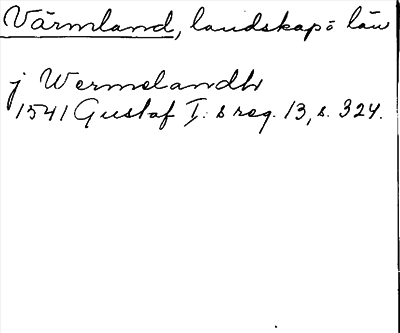 Värmland, landskap o län
j Wermelandh
1541 Gustaf I:s reg. 13, s. 324.